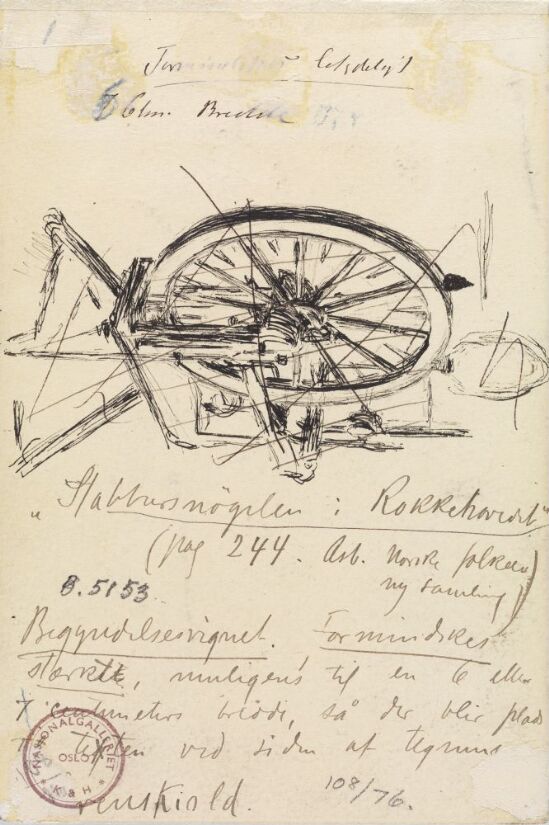 1
6 Ctm. Bredde
„Stabbursnögelen i Rokkehovedet"
(pag 244. Asb. Norske folkeev
ny samling)
B.5153.
Begyndelsesvignet. Formindskes
stærkt, muligens til en 6 eller
7 centimeters bredde, så der blir plads
til teksten ved siden af tegning
renskiold.
108/76.
NASJONALGALLERIET
OSLO
K & H